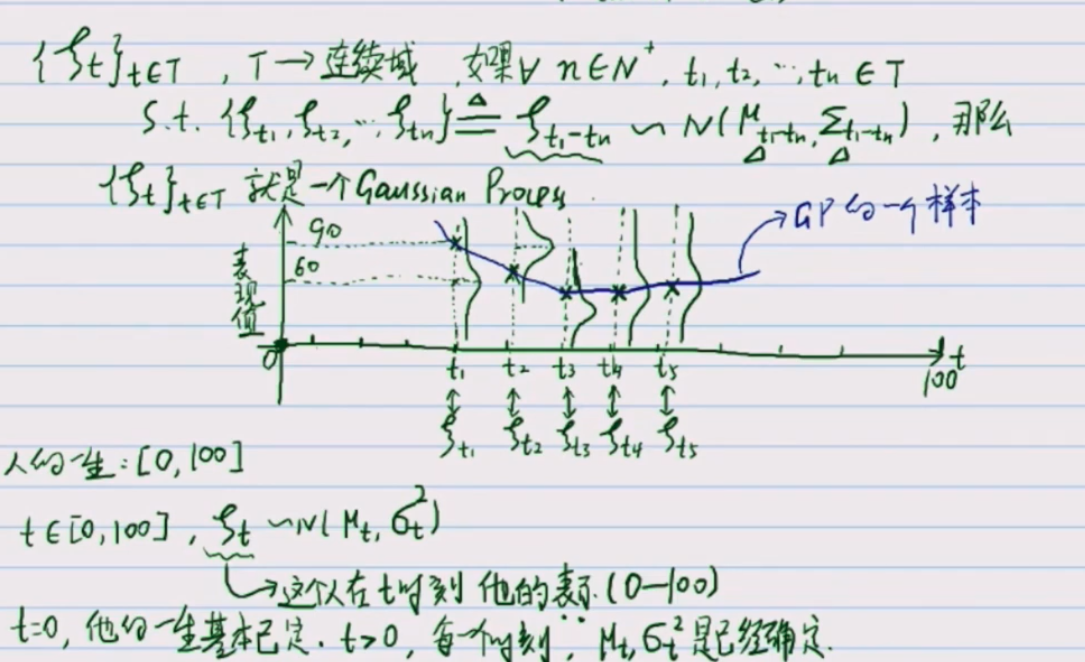 {ξt}t∈T , T → 连续域 , 如果∀ n∈N⁺, t₁, t₂, …, tn ∈ T
s.t. {ξt₁, ξt₂, …, ξtn} ≜ ξt₁-tn ~ N(μt₁-tn, Σt₁-tn) , 那么
{ξt}t∈T 就是一个Gaussian Process.
GP的一个样本
90
60
表现值
0
t₁ t₂ t₃ t₄ t₅ t
100
ξt₁ ξt₂ ξt₃ ξt₄ ξt₅
人的一生: [0, 100]
t∈[0,100] , ξt ~ N(μt, σt²)
→这个人在t时刻 他的表示. (0—100)
t=0, 他的一生基本已定. t>0, 每一个时刻, μt, σt² 是已经确定.